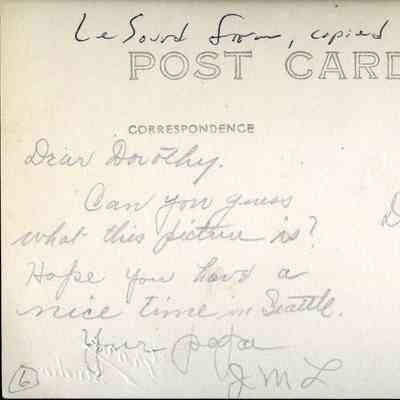 LeSourd from, copied
POST CARD
CORRESPONDENCE
Dear Dorothy.
Can you guess
what this picture is?
Hope you have a
nice time in Seattle.
Your papa
J M L
6
D